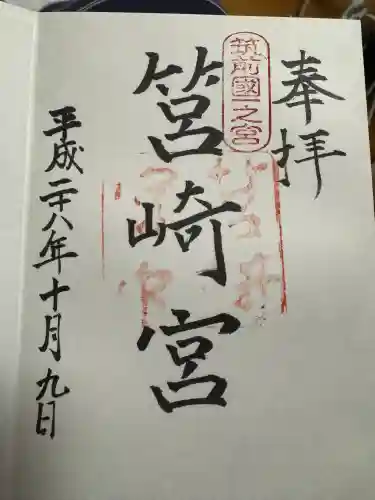 奉拝
筑前國一之宮
筥崎宮
平成二十八年十月九日